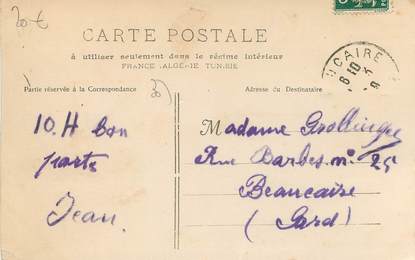 20 €
CARTE POSTALE
à utiliser seulement dans le régime intérieur
FRANCE ALGÉRIE TUNISIE
Partie réservée à la Correspondance
Adresse du Destinataire
10. H bon
porte
Jean.
Madame
Rue Barbès nº 25
Beaucaire
(Gard)
UCAIRE